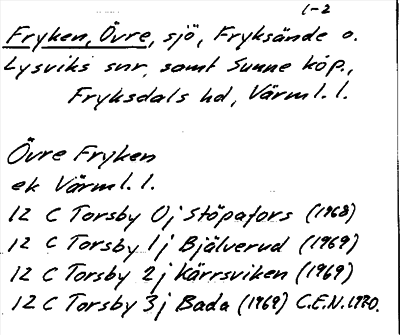 1-2
Fryken, Övre, sjö, Fryksände o.
Lysviks snr, samt Sunne köp.,
Fryksdals hd, Värml. l.
Övre Fryken
ek Värml. l.
12 C Torsby 0j Stöpafors (1968)
12 C Torsby 1j Bjälverud (1969)
12 C Torsby 2j Kärrsviken (1969)
12 C Torsby 3j Bada (1969) C.E.N. 1970.